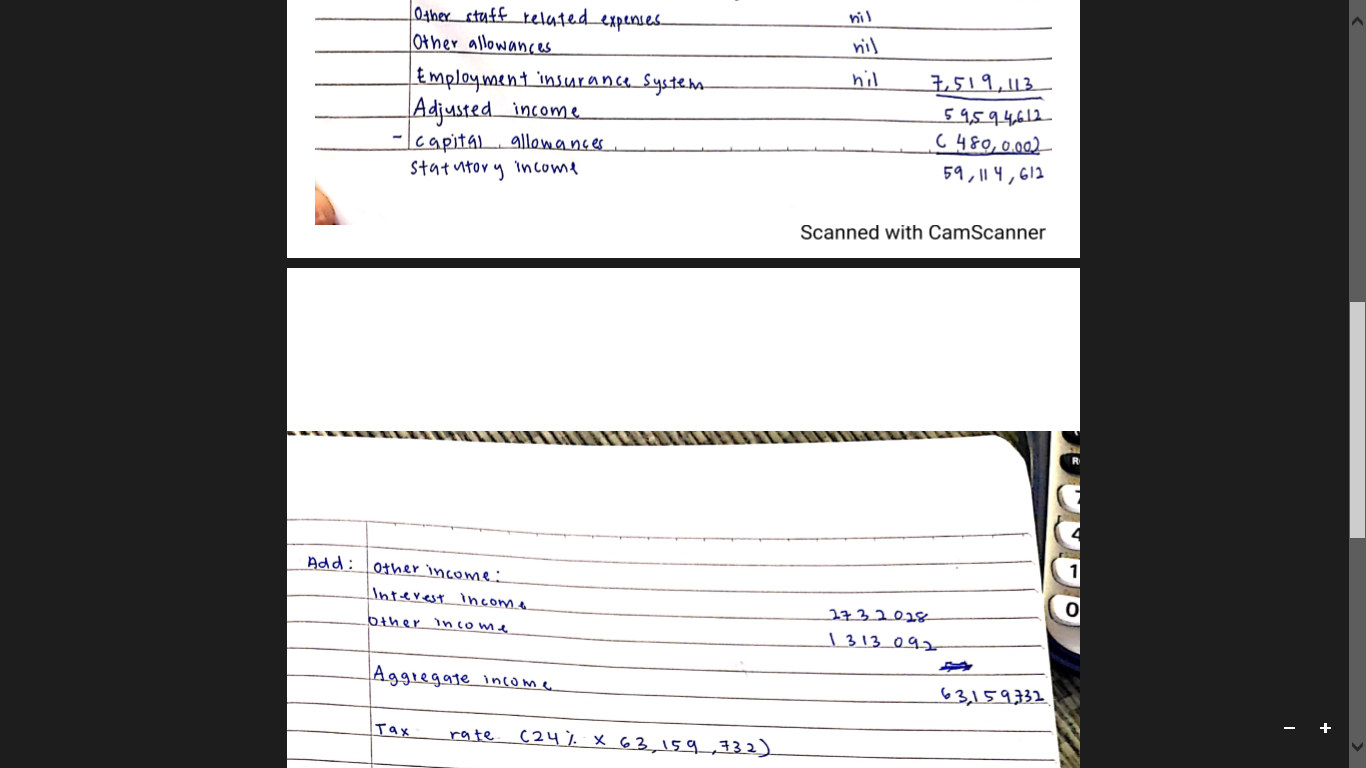 Other staff related expenses nil
Other allowances nil
Employment insurance system nil 7,519,113
Adjusted income 59,594,612
- capital allowances (480,000)
Statutory income 59,114,612
Scanned with CamScanner
Add: Other income:
Interest income 2732028
Other income 1313092
Aggregate income 63,159,732
Tax rate (24% x 63,159,732)
R
7
4
1
0